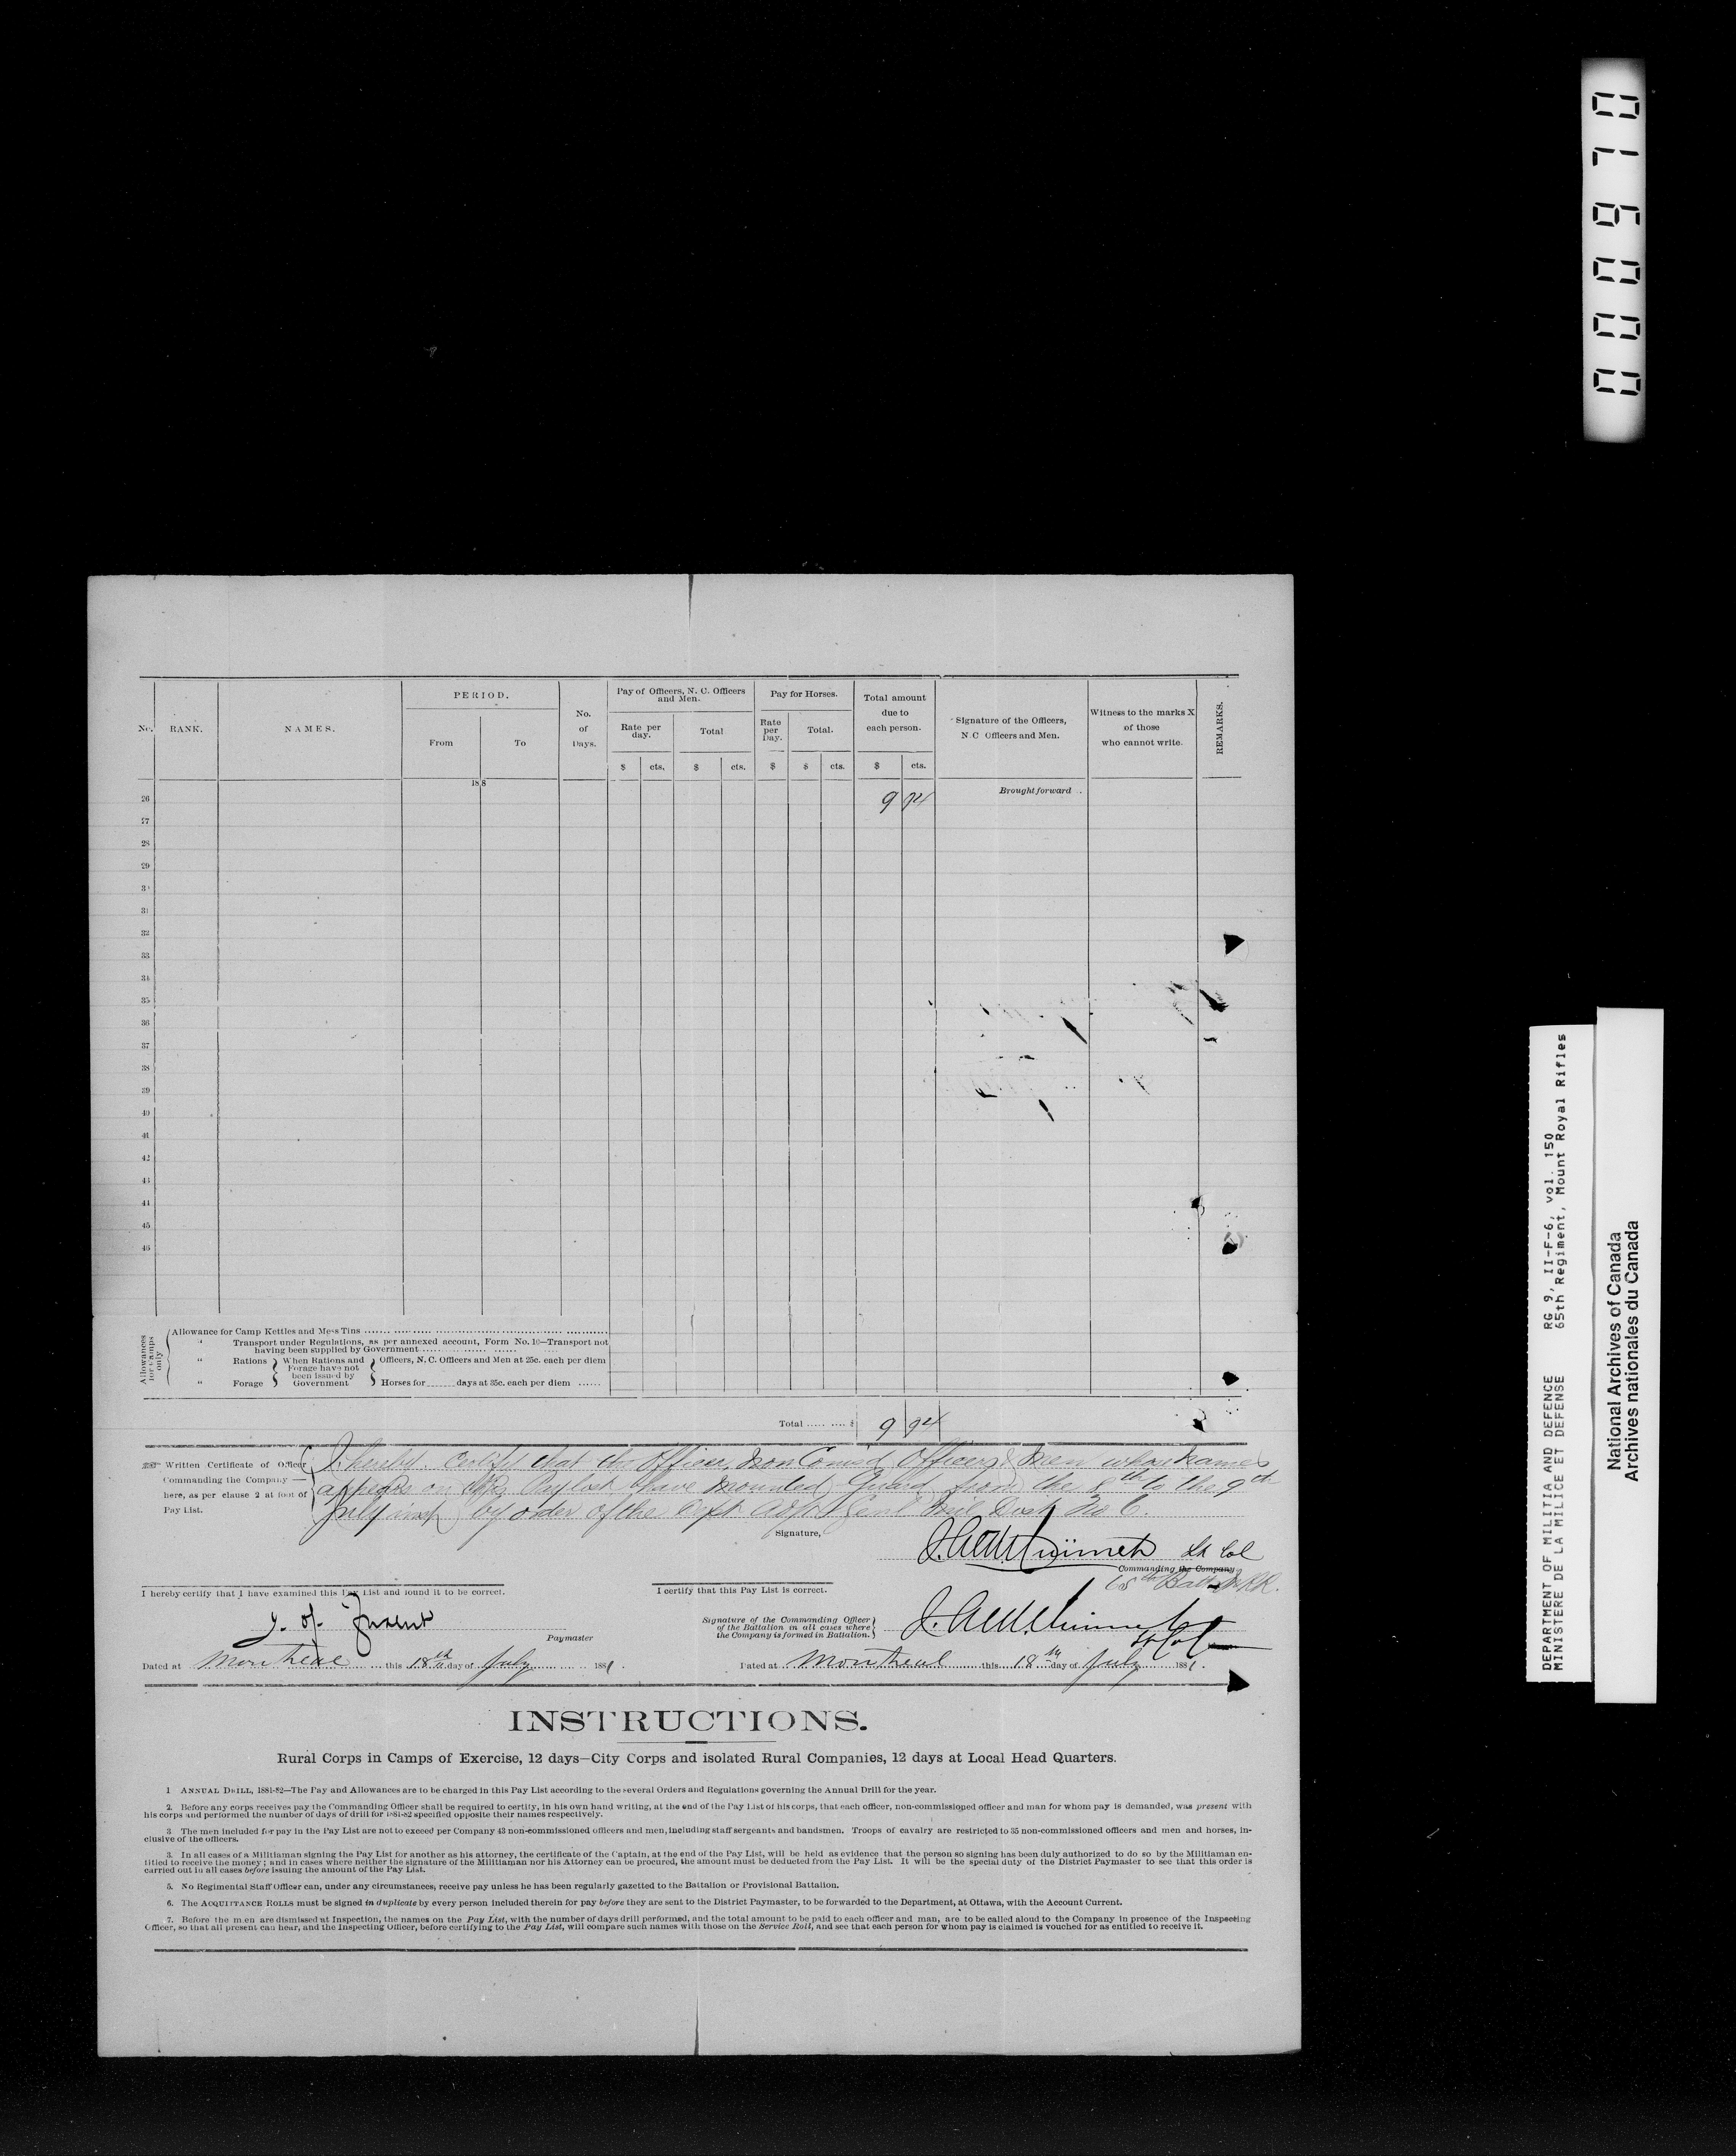 000970
DEPARTMENT OF MILITIA AND DEFENCE RG 9, II-F-6, vol. 150
MINISTERE DE LA MILICE ET DEFENSE 65th Regiment, Mount Royal Rifles
National Archives of Canada
Archives nationales du Canada
No. RANK. NAMES. PERIOD. From To No. of Days. Pay of Officers, N. C. Officers and Men. Rate per day. Total Pay for Horses. Rate per Day. Total. Total amount due to each person. Signature of the Officers, N.C Officers and Men. Witness to the marks X of those who cannot write. REMARKS.
$ cts. $ cts. $ $ cts. $ cts.
188
26 9 94 Brought forward
27
28
29
3
31
32
33
34
35
36
37
38
39
40
41
42
43
44
45
46
Allowances for Camps only
Allowance for Camp Kettles and Mess Tins
" Transport under Regulations, as per annexed account, Form No. 10—Transport not having been supplied by Government
" Rations When Rations and Forage have not been issued by Government Officers, N. C. Officers and Men at 25c. each per diem
" Forage Horses for days at 35c. each per diem
Total $ 9 94
Written Certificate of Officer Commanding the Company — here, as per clause 2 at foot of Pay List.
I hereby Certify that the Officer, Non Com'd Officers & Men whose names
appears on this Paylist have mounted Guard from the 8th to the 9th
July inst by order of the Dept Adjt Genl Mil Dist No 6.
Signature, Lt Col
Commanding the Company
65th Batt M.R.R.
I hereby certify that I have examined this Pay List and found it to be correct.
Paymaster
Dated at Montreal this 18th day of July 1881.
I certify that this Pay List is correct.
Signature of the Commanding Officer of the Battalion in all cases where the Company is formed in Battalion.
Lt Col
Dated at Montreal this 18th day of July 1881.
INSTRUCTIONS.
Rural Corps in Camps of Exercise, 12 days—City Corps and isolated Rural Companies, 12 days at Local Head Quarters.
1 ANNUAL DRILL, 1881-82—The Pay and Allowances are to be charged in this Pay List according to the several Orders and Regulations governing the Annual Drill for the year.
2. Before any corps receives pay the Commanding Officer shall be required to certify, in his own hand writing, at the end of the Pay List of his corps, that each officer, non-commissioned officer and man for whom pay is demanded, was present with
his corps and performed the number of days of drill for 1881-82 specified opposite their names respectively.
3 The men included for pay in the Pay List are not to exceed per Company 43 non-commissioned officers and men, including staff sergeants and bandsmen. Troops of cavalry are restricted to 35 non-commissioned officers and men and horses, in-
clusive of the officers.
3. In all cases of a Militiaman signing the Pay List for another as his attorney, the certificate of the Captain, at the end of the Pay List, will be held as evidence that the person so signing has been duly authorized to do so by the Militiaman en-
titled to receive the money; and in cases where neither the signature of the Militiaman nor his Attorney can be procured, the amount must be deducted from the Pay List. It will be the special duty of the District Paymaster to see that this order is
carried out in all cases before issuing the amount of the Pay List.
5. No Regimental Staff Officer can, under any circumstances, receive pay unless he has been regularly gazetted to the Battalion or Provisional Battalion.
6. The ACQUITTANCE ROLLS must be signed in duplicate by every person included therein for pay before they are sent to the District Paymaster, to be forwarded to the Department, at Ottawa, with the Account Current.
7. Before the men are dismissed at Inspection, the names on the Pay List, with the number of days drill performed, and the total amount to be paid to each officer and man, are to be called aloud to the Company in presence of the Inspecting
Officer, so that all present can hear, and the Inspecting Officer, before certifying to the Pay List, will compare such names with those on the Service Roll, and see that each person for whom pay is claimed is vouched for as entitled to receive it.